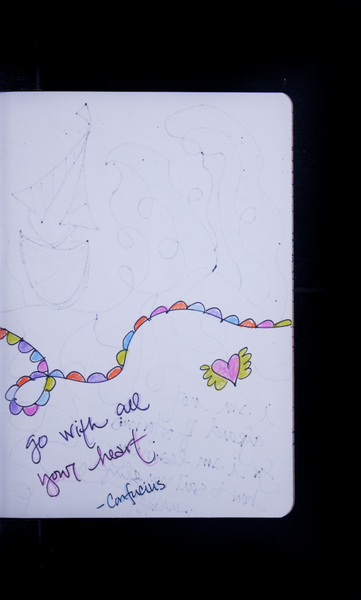 go with all
your heart.
- Confucius